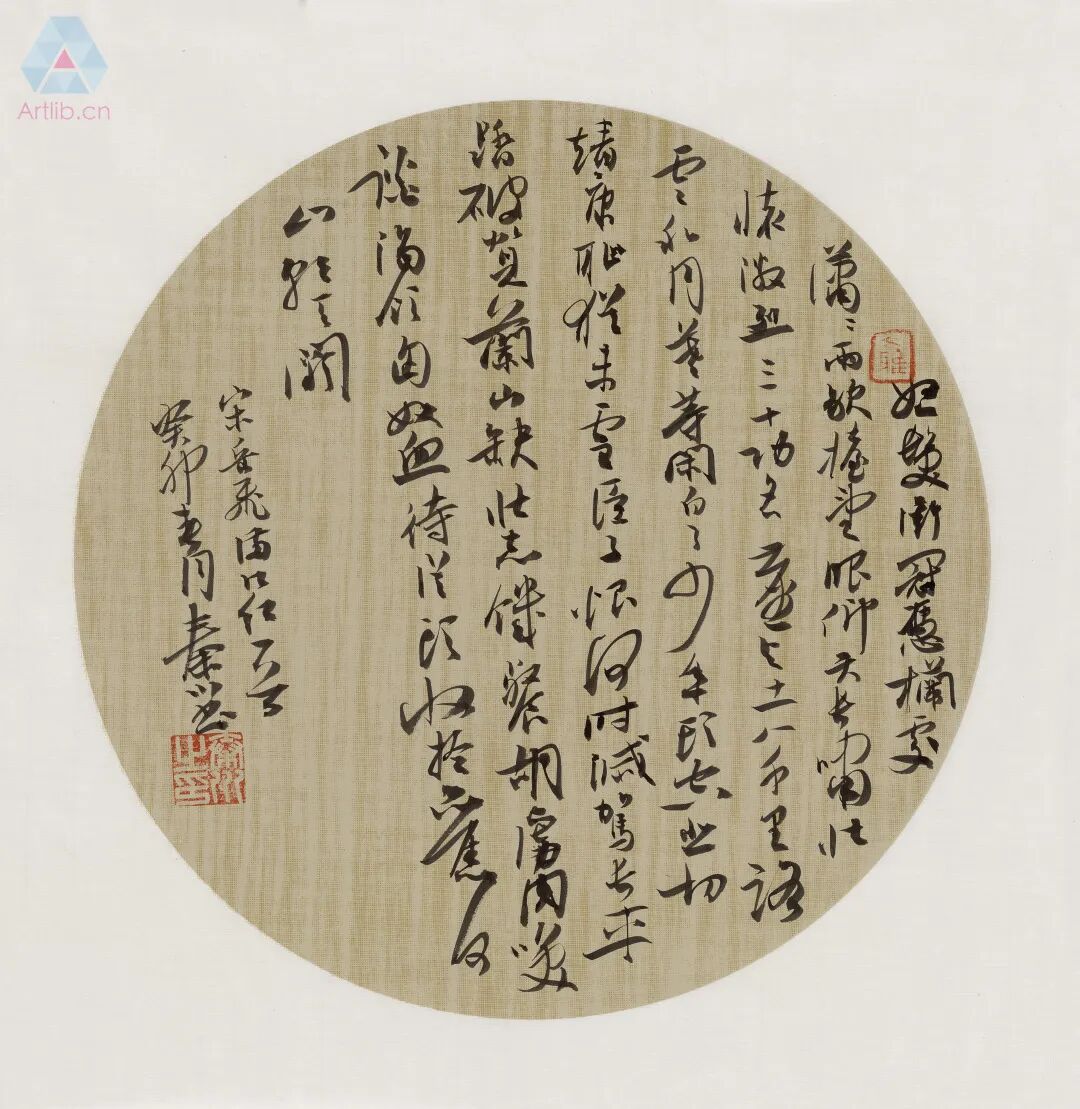 Artlib.cn
怒髮衝冠憑欄處
瀟〻雨歇擡望眼仰天長嘯壯
懷激烈三十功名塵與土八千里路
雲和月莫等閑白了少年頭空悲切
靖康恥猶未雪臣子恨何時滅駕長車
踏破賀蘭山缺壯志饑餐胡虜肉笑
談渴飲匈奴血待從頭收拾舊河
山朝天闕
宋岳飛滿江紅
癸卯春月秦